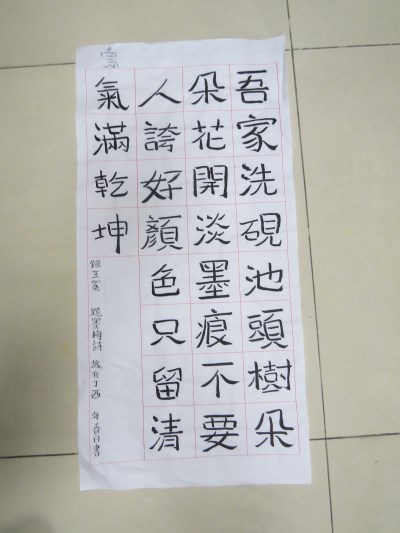 吾家洗硯池頭樹朵
朵花開淡墨痕不要
人誇好顏色只留清
氣滿乾坤
錄王冕 題墨梅詩 歲在丁酉 年春日書